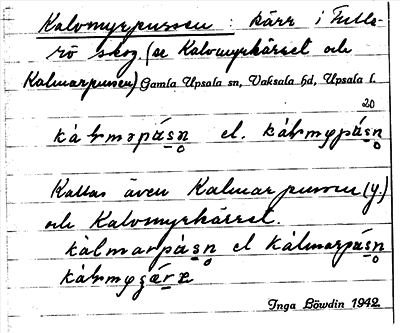 Kalvmyrpussen : kärr i Tulle-
rö skog. (se Kalvmyrkärret och
Kalmarpussen) Gamla Upsala sn, Vaksala hd, Upsala l.
20
el.
Kallas även Kalmarpussen (y.)
och Kalvmyrkärret.
kàlmarpàsn el kálmarpásn
Inga Löwdin 1942.